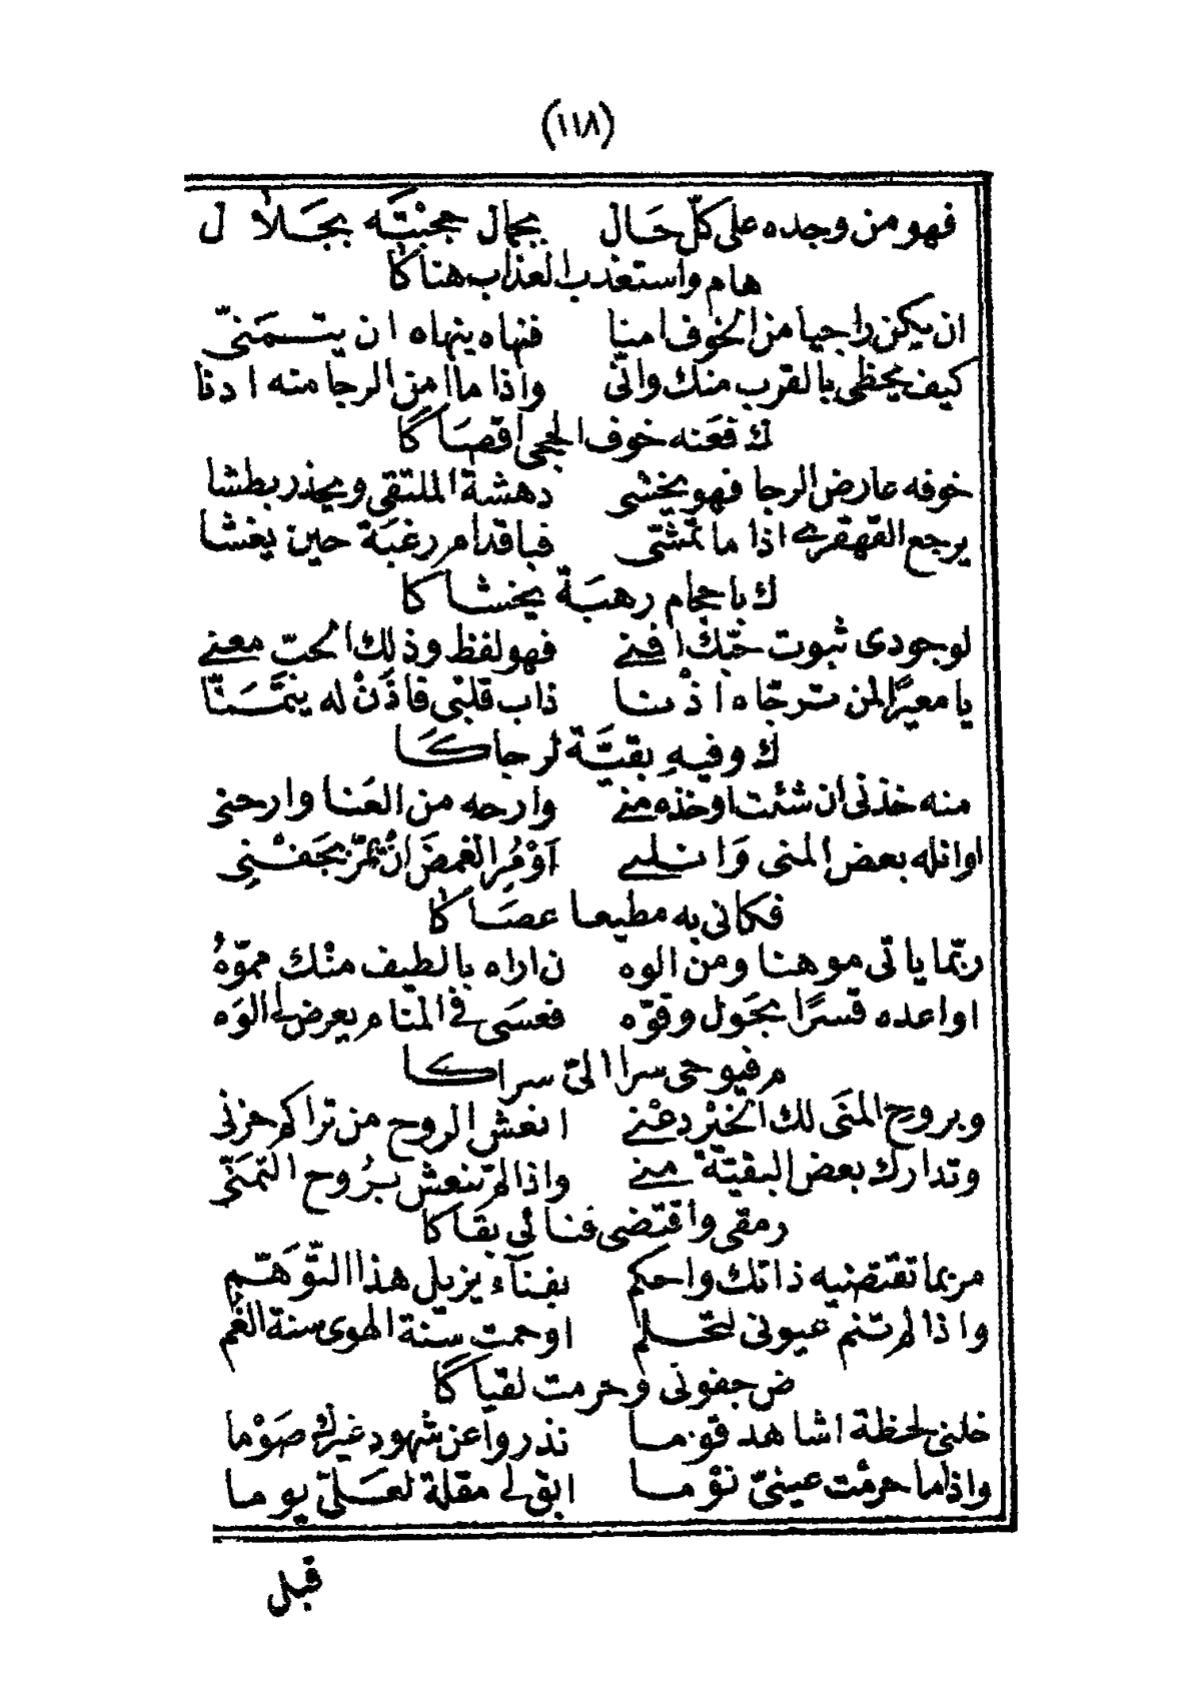 (١١٨)
فهو من وجده على كلّ حَال بجمال حجبْتَه بجَلاَل
هام واستعذب العذاب هناكا
ان يكن راجيا من الخوف امنا فنهاه ينهاه ان يتـمَنىّ
كيف يحظى بالقرب منك وانّى واذا ما امن الرجا منه ادنا
ك فعَنه خوف الحجى اقصَاكا
خوفه عارض الرجا فهو يخشى دهشة الملتقى ويحذر بطشا
يرجع القهقرى اذا ما تمشّى فباقدام رغبَة حين يغشا
ك باحجام رهبَة يخشاكا
لوجودى ثبوت حبّك افنى فهو لفظ وذلك الحبّ معنى
يا معيرًا لمن ترجّاه اذْنا ذاب قلبى فاذَنْ له يتمَنّا
ك وفيهِ بقيَّة لرجاكَا
منه خذنى ان شئت او خذه منى وارحه من العَنا وارحنى
او انله بعض المنى وَانلنى اَوْمُرِ الغمضَ انْ يمرّ بجَفْنِى
فكانى به مطيعا عصَاكا
ربّما ياتى موهنا ومن الوه ن اراه بالطيف منْك مموّهُ
او اعده قسرًا بحَول وقوّه فعسَى فى المنام يعرض لى الوَه
م فيوحى سرا الىّ سراكا
وبروح المنَى لك الخيْر دعْنى انعش الروح من تراكم حزنى
وتدارك بعض البقيّة منى واذا لم تنعش بِرُوح التمَنّى
رمقى واقتضى فنائى بقَاكا
مر بما تقتضيه ذاتك واحكم بفنآء يزيل هذا التوّهَّم
واذا لم تنم عيونى لتحلم او حمت سنّة الهوى سنة الغم
ض جفونى وحرمت لقياكا
خلنى لحظة اشاهد قوما نذروا عن شُهود غيرك صَوْما
واذا ما حرمْت عينىّ نوْما ابق لى مقلة لعَلىّ يوما
قبل